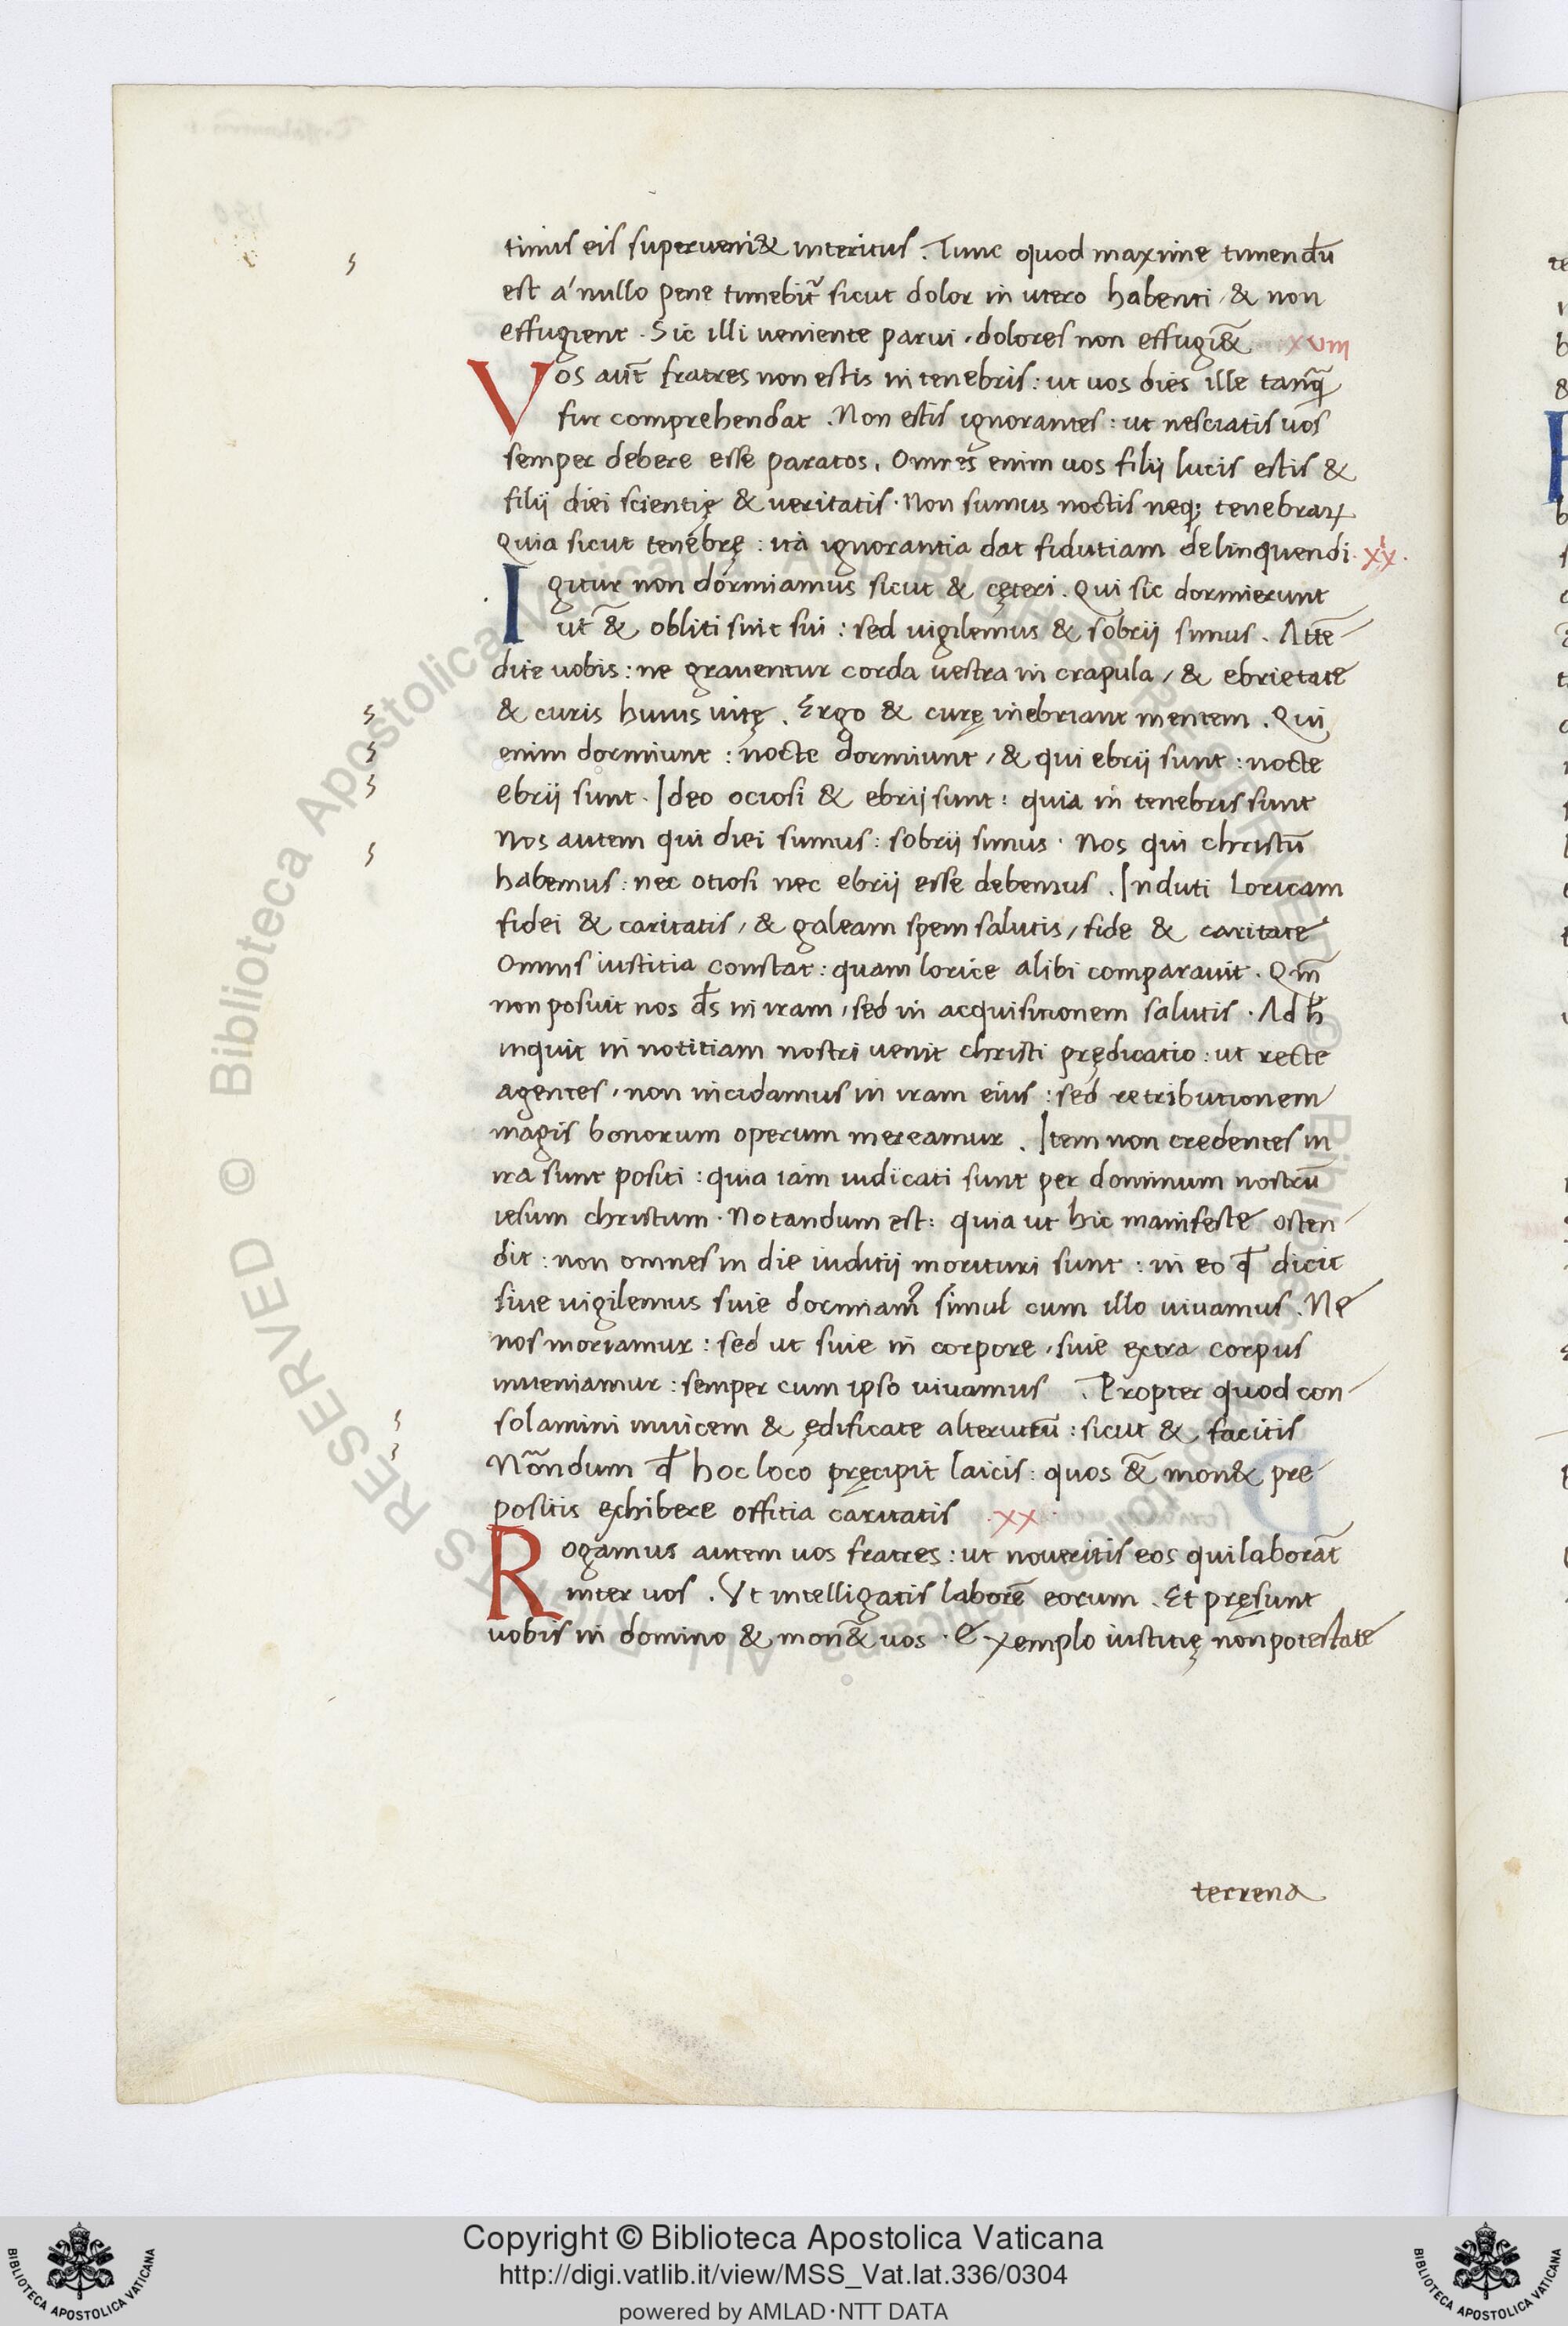 tinus eis superueni& interitus. Tunc quod maxime timendū
est a' nullo pene timebit̃ sicut dolor in utero habenti, & non
effugient. Sic illi ueniente parui, dolores non effugi&̃ xviii
Vos aut̃ fratres non estis in tenebris: ut uos dies ille tanq̃
fur comprehendat. Non estis ignorantes: ut nesciatis uos
semper debere esse paratos. Omnes enim uos filij lucis estis &
filij diei scientię & ueritatis. Non sumus noctis neq; tenebraꝝ
Quia sicut tenebrę: ita ignorantia dat fidutiam delinquendi. xix.
Igitur non dormiamus sicut & cęteri. Qui sic dormierunt
ut &̃ obliti sint sui: sed uigilemus & sobrij simus. Attē
dite uobis: ne grauentur corda uestra in crapula, & ebrietate
& curis huius uitę. Ergo & curę inebriant mentem. Qui
enim dormiunt: nocte dormiunt, & qui ebrij sunt: nocte
ebrij sunt. Ideo ociosi & ebrij sunt: quia in tenebris sunt
Nos autem qui diei sumus: sobrij simus. Nos qui christū
habemus: nec otiosi nec ebrij esse debemus. Induti Loricam
fidei & caritatis, & galeam spem salutis, fide & caritate
Omnis iustitia constat: quam lorice alibi comparauit. Qm̃
non posuit nos ds̃ in iram, sed in acquisitionem salutis. Ad h̃
inquit in notitiam nostri uenit christi prędicatio: ut recte
agentes, non incidamus in iram eius: sed retributionem
magis bonorum operum mereamur. Item non credentes in
ira sunt positi: quia iam iudicati sunt per dominum nostrū
iesum christum. Notandum est: quia ut hic manifeste osten
dit: non omnes in die iuditij morituri sunt: in eo ꝙ dicit
siue uigilemus siue dormiam᾽ simul cum illo uiuamus. Ne
nos moriamur: sed ut siue in corpore, siue extra corpus
inueniamur: semper cum ipso uiuamus. Propter quod con
solamini inuicem & ędificate alterutrū: sicut & facitis
Nõndum ꝙ hoc loco pręcipit laicis: quos &̃ mon& pre
positis exhibere offitia caritatis .xx.
Rogamus autem uos fratres: ut noueritis eos qui laborãt
inter uos. Vt intelligatis laborē eorum. Et pręsunt
uobis in domino & mon&̃ uos. Exemplo iustitię non potestate
terrena
© Biblioteca Apostolica Vaticana ALL RIGHTS RESERVED
Copyright © Biblioteca Apostolica Vaticana
http://digi.vatlib.it/view/MSS_Vat.lat.336/0304
powered by AMLAD·NTT DATA
BIBLIOTECA APOSTOLICA VATICANA
BIBLIOTECA APOSTOLICA VATICANA